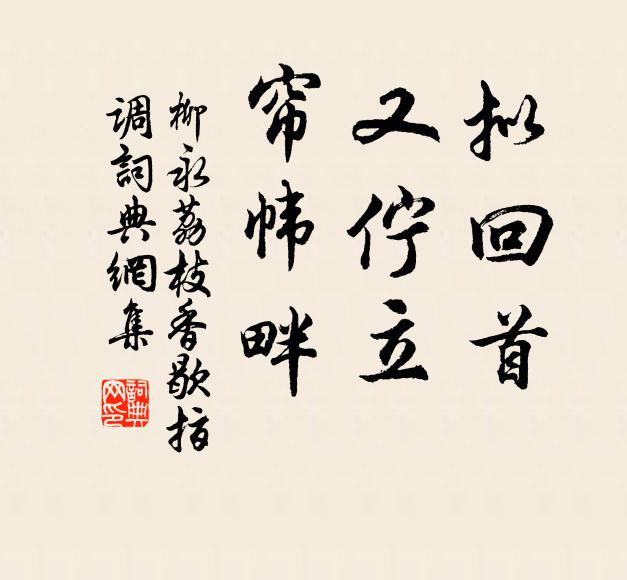 拟回首
又伫立
帘帏畔
柳永荔枝香歇指
调詞典網集
詞典
网印